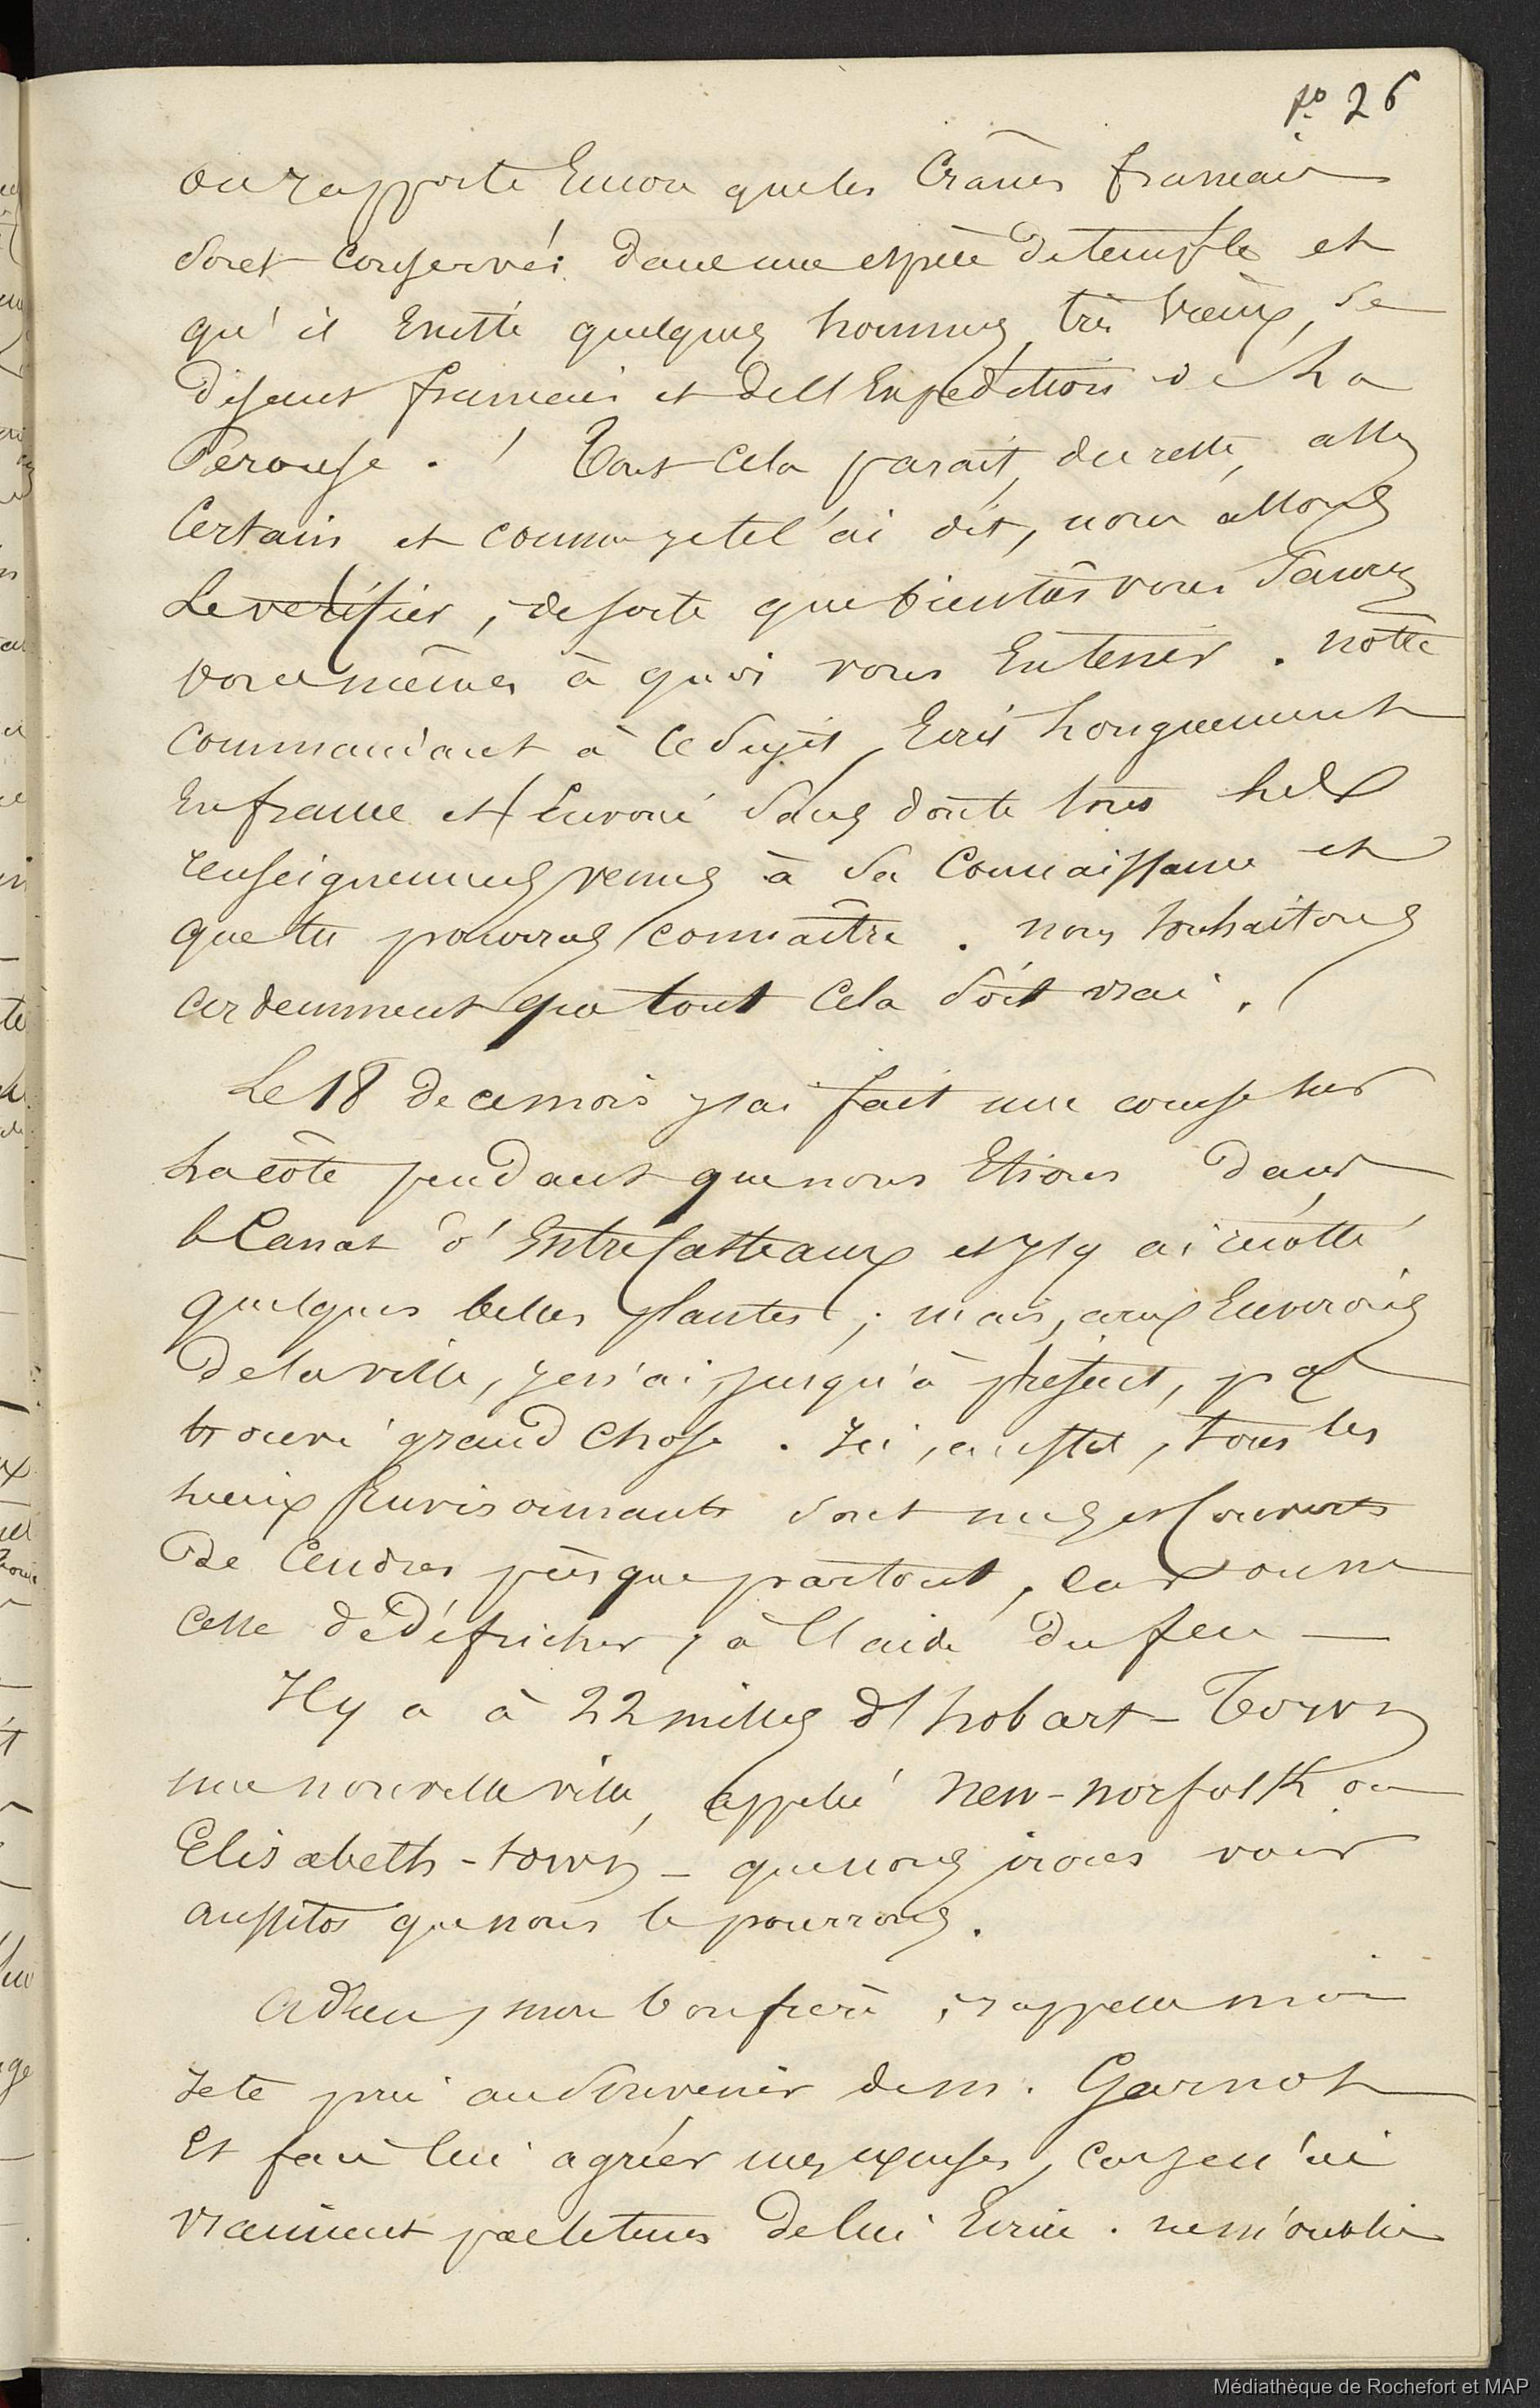 fo 26
on rapporte Encore que les Crânes francais
sont conservés dans une espèce de temple et
qu'il Existe quelques hommes très vieux, se
disant francais et de l'Expédition de La
Pérouse. ! Tout Cela parait, du reste, assez
Certain et comme je te l'ai dit, nous allons
Le vérifier, de sorte que bientôt vous saurez
vous mêmes à quoi vous En tenir. nôtre
commandant à ce sujet, Ecrit Longuement
En france et Envoie sans doute tous Les
renseignemens venus à sa Connaissance et
que tu pourras connaître. nous souhaitons
ardemment que tout Cela soit vrai.
Le 18 de ce mois j'ai fait une course sur
La côte pendant que nous Etions dans
le Canal d'Entrecasteaux et j'y ai récolté
quelques belles plantes; mais, aux Environs
De la ville, je n'ai, jusqu'à présent, pas
trouvé grand Chose. Ici, en effet, tous les
Lieux Environnants sont nus et Couverts
De Cendres presque partout, car on ne
cesse de défricher, à l'aide du feu —
Il y a à 22 milles d'hobart-Town
une nouvelle ville, appelée New-norfolk ou
Elisabeth-town — que nous irons voir
aussitos que nous le pourrons.
adieu, mon bon frère, rappelle moi
Je te prie au souvenir de m. Garnot
Et fais lui agréer mes excuses, car je n'ai
vraiment pas le tems de lui Ecrire. ne m'oublie
Médiathèque de Rochefort et MAP